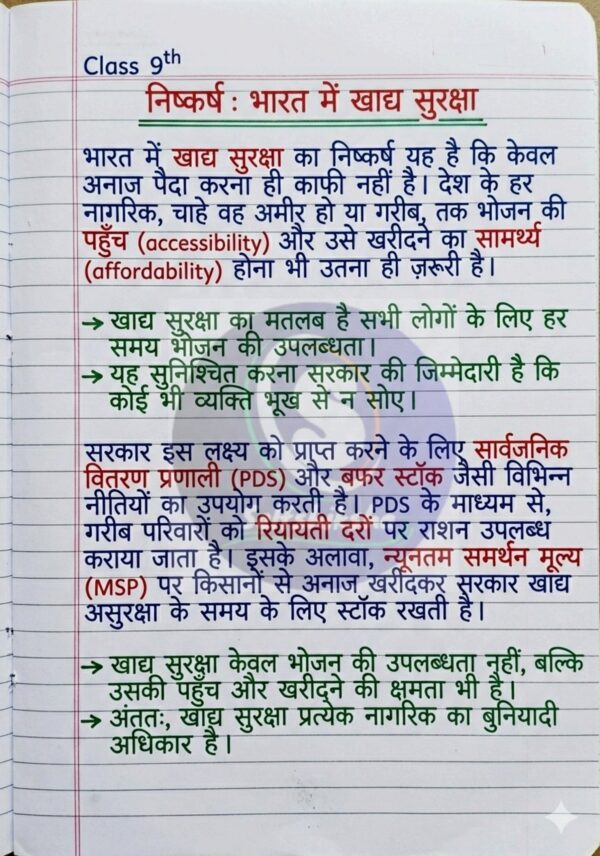 Class 9th
निष्कर्ष : भारत में खाद्य सुरक्षा
भारत में खाद्य सुरक्षा का निष्कर्ष यह है कि केवल
अनाज पैदा करना ही काफी नहीं है। देश के हर
नागरिक, चाहे वह अमीर हो या गरीब, तक भोजन की
पहुँच (accessibility) और उसे खरीदने का सामर्थ्य
(affordability) होना भी उतना ही ज़रूरी है।
→ खाद्य सुरक्षा का मतलब है सभी लोगों के लिए हर
समय भोजन की उपलब्धता।
→ यह सुनिश्चित करना सरकार की जिम्मेदारी है कि
कोई भी व्यक्ति भूख से न सोए।
सरकार इस लक्ष्य को प्राप्त करने के लिए सार्वजनिक
वितरण प्रणाली (PDS) और बफर स्टॉक जैसी विभिन्न
नीतियों का उपयोग करती है। PDS के माध्यम से,
गरीब परिवारों को रियायती दरों पर राशन उपलब्ध
कराया जाता है। इसके अलावा, न्यूनतम समर्थन मूल्य
(MSP) पर किसानों से अनाज खरीदकर सरकार खाद्य
असुरक्षा के समय के लिए स्टॉक रखती है।
→ खाद्य सुरक्षा केवल भोजन की उपलब्धता नहीं, बल्कि
उसकी पहुँच और खरीदने की क्षमता भी है।
→ अंततः, खाद्य सुरक्षा प्रत्येक नागरिक का बुनियादी
अधिकार है।